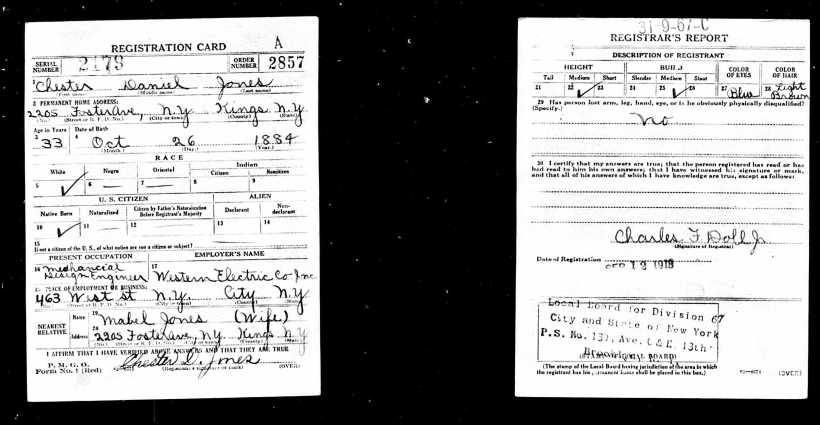 REGISTRATION CARD A
SERIAL NUMBER 2178 ORDER NUMBER 2857
Chester Daniel Jones
(First name) (Middle name) (Last name)
2 PERMANENT HOME ADDRESS:
2205 Foster Ave, N.Y. Kings N.Y.
(No.) (Street or R. F. D. No.) (City or town) (County) (State)
Age in Years Date of Birth
3 33 4 Oct 26 1884
(Month.) (Day.) (Year.)
RACE
White Negro Oriental Indian
Citizen Noncitizen
5 6 7 8 9
U. S. CITIZEN ALIEN
Native Born Naturalized Citizen by Father's Naturalization Before Registrant's Majority Declarant Non-declarant
10 11 12 13 14
15
If not a citizen of the U. S., of what nation are you a citizen or subject?
PRESENT OCCUPATION EMPLOYER'S NAME
16 Mechanical Design Engineer 17 Western Electric Co Inc
18 PLACE OF EMPLOYMENT OR BUSINESS:
463 West st N.Y. City N.Y.
(No.) (Street or R. F. D. No.) (City or town) (County) (State)
NEAREST RELATIVE Name 19 Mabel Jones (Wife)
Address 20 2205 Foster Ave, NY Kings N.Y.
(No.) (Street or R. F. D. No.) (City or town) (County) (State)
I AFFIRM THAT I HAVE VERIFIED ABOVE ANSWERS AND THAT THEY ARE TRUE
P. M. G. O.
Form No. 1 (Red) Chester D. Jones
(Registrant's signature or mark) (OVER)
31-9-67-C
REGISTRAR'S REPORT
DESCRIPTION OF REGISTRANT
HEIGHT BUILD COLOR OF EYES COLOR OF HAIR
Tall Medium Short Slender Medium Stout
21 22 23 24 25 26 27 Blue 28 Light Brown
29 Has person lost arm, leg, hand, eye, or is he obviously physically disqualified?
(Specify.)
No
30 I certify that my answers are true; that the person registered has read or has
had read to him his own answers; that I have witnessed his signature or mark,
and that all of his answers of which I have knowledge are true, except as follows:
Charles F Doll Jr
(Signature of Registrar)
Date of Registration SEP 12 1918
Local Board for Division 67
City and State of New York
P.S. No. 139, Ave. C & E. 13th
Brooklyn
(STAMP OF LOCAL BOARD)
(The stamp of the Local Board having jurisdiction of the area in which
the registrant has his permanent home shall be placed in this box.)
(OVER)